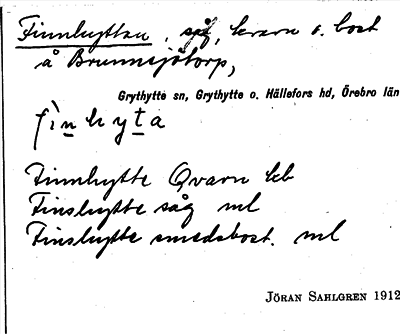 Finnhyttan, såg, kvarn o. bost
å Brunnsjötorp,
Grythytte sn, Grythytte o. Hällefors hd, Örebro län
fìnhyta
Finnhytte Qvarn kb
Finshytte såg ml
Finshytte smedsbost. ml
JÖRAN SAHLGREN 1912